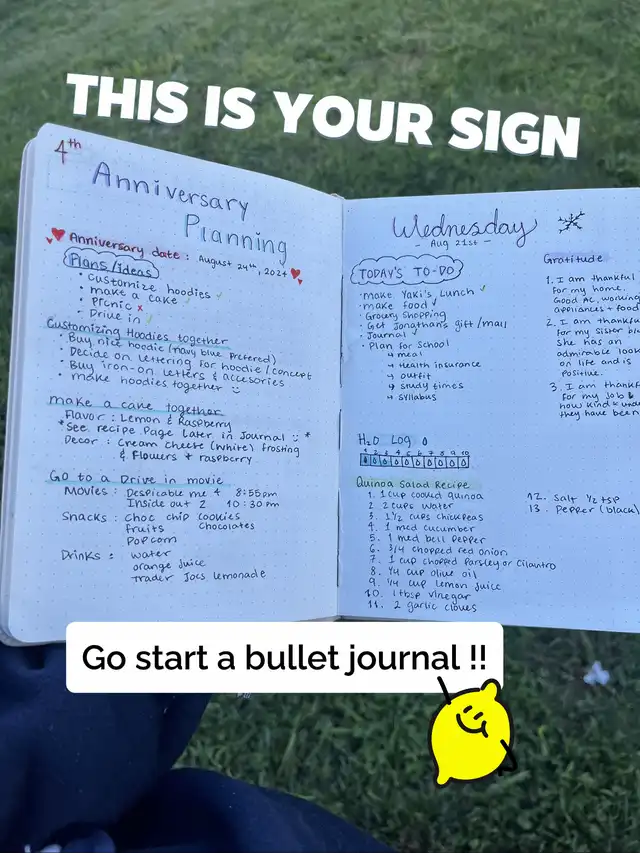 THIS IS YOUR SIGN
4th
Anniversary
Planning
Anniversary date : August 24th, 2024
Plans/ideas
• customize hoodies
• make a cake
• Picnic x
• Drive in
Customizing Hoodies together
• Buy nice hoodie (navy blue preferred)
• Decide on lettering for hoodie/concept
• Buy iron-on letters & accesories
• make hoodies together
make a cake together
Flavor : Lemon & Raspberry
*See recipe page later in Journal *
Decor : Cream cheese (white) frosting
& Flowers + raspberry
Go to a Drive in movie
Movies : Despicable me 4 8:55pm
Inside out 2 10:30pm
Snacks : Choc chip cookies
Fruits Chocolates
Popcorn
Drinks : water
orange juice
Trader Joes lemonade
Wednesday
- Aug 21st -
TODAY'S TO-DO
• Make Yaki's Lunch
• make food
• Grocery Shopping
• Get Jonathan's gift/mail
• Journal
• Plan for School
↳ meal
↳ Health insurance
↳ outfit
↳ study times
↳ syllabus
H2O LOG
1 2 3 4 5 6 7 8 9 10
Quinoa Salad Recipe
1. 1 cup cooked quinoa
2. 2 cups water
3. 1 1/2 cups chickpeas
4. 1 med cucumber
5. 1 med bell pepper
6. 3/4 chopped red onion
7. 1 cup chopped Parsley or Cilantro
8. 1/4 cup olive oil
9. 1/4 cup lemon juice
10. 1 tbsp vinegar
11. 2 garlic cloves
12. Salt 1/2 tsp
13. Pepper (black)
Gratitude
1. I am thankful
for my home.
Good AC, working
appliances + food
2. I am thankful
for my sister
she has an
admirable look
on life and is
positive.
3. I am thankf
for my job &
how kind &
they have been
Go start a bullet journal !!